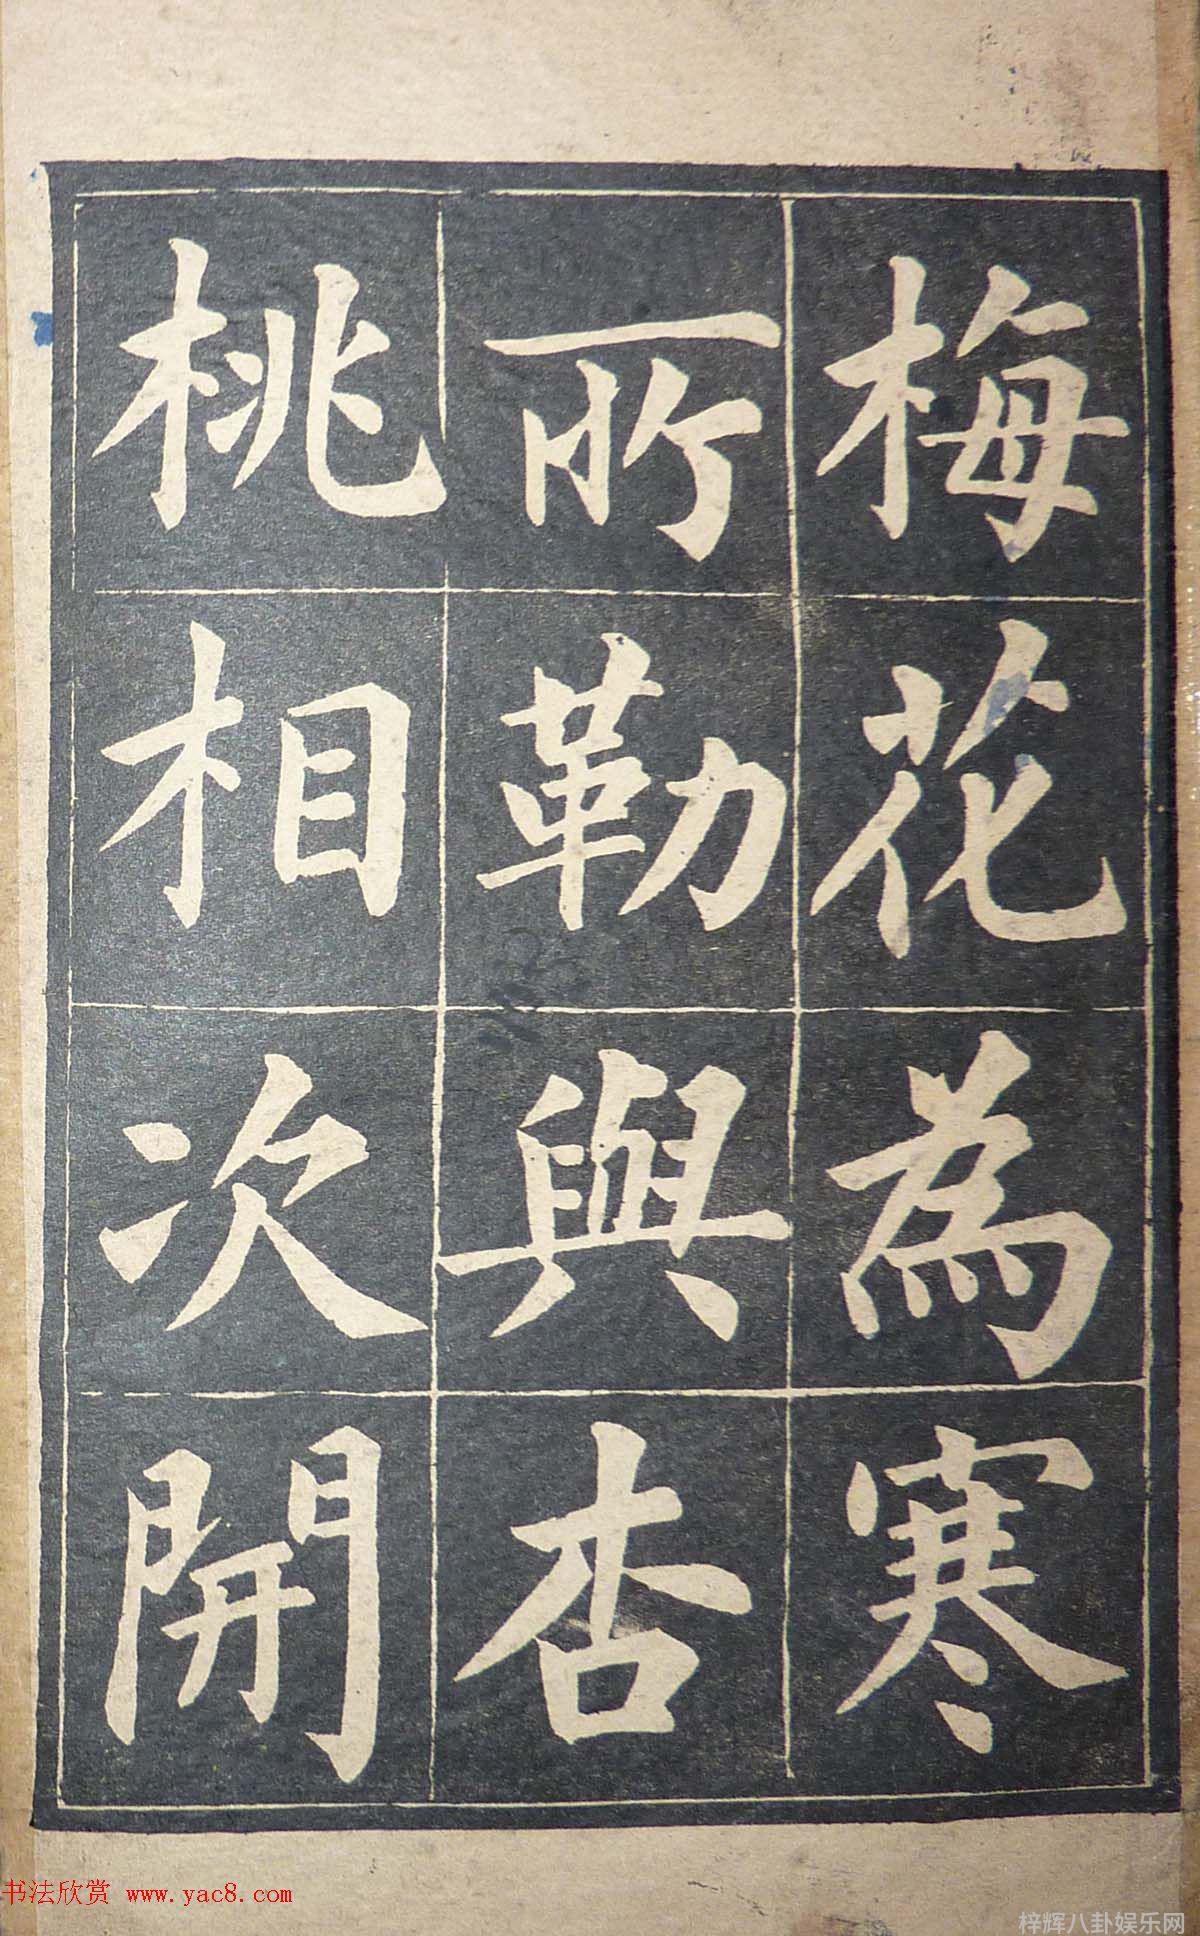 梅花為寒
所勒與杏
桃相次開
书法欣赏 www.yac8.com
梓辉八卦娱乐网